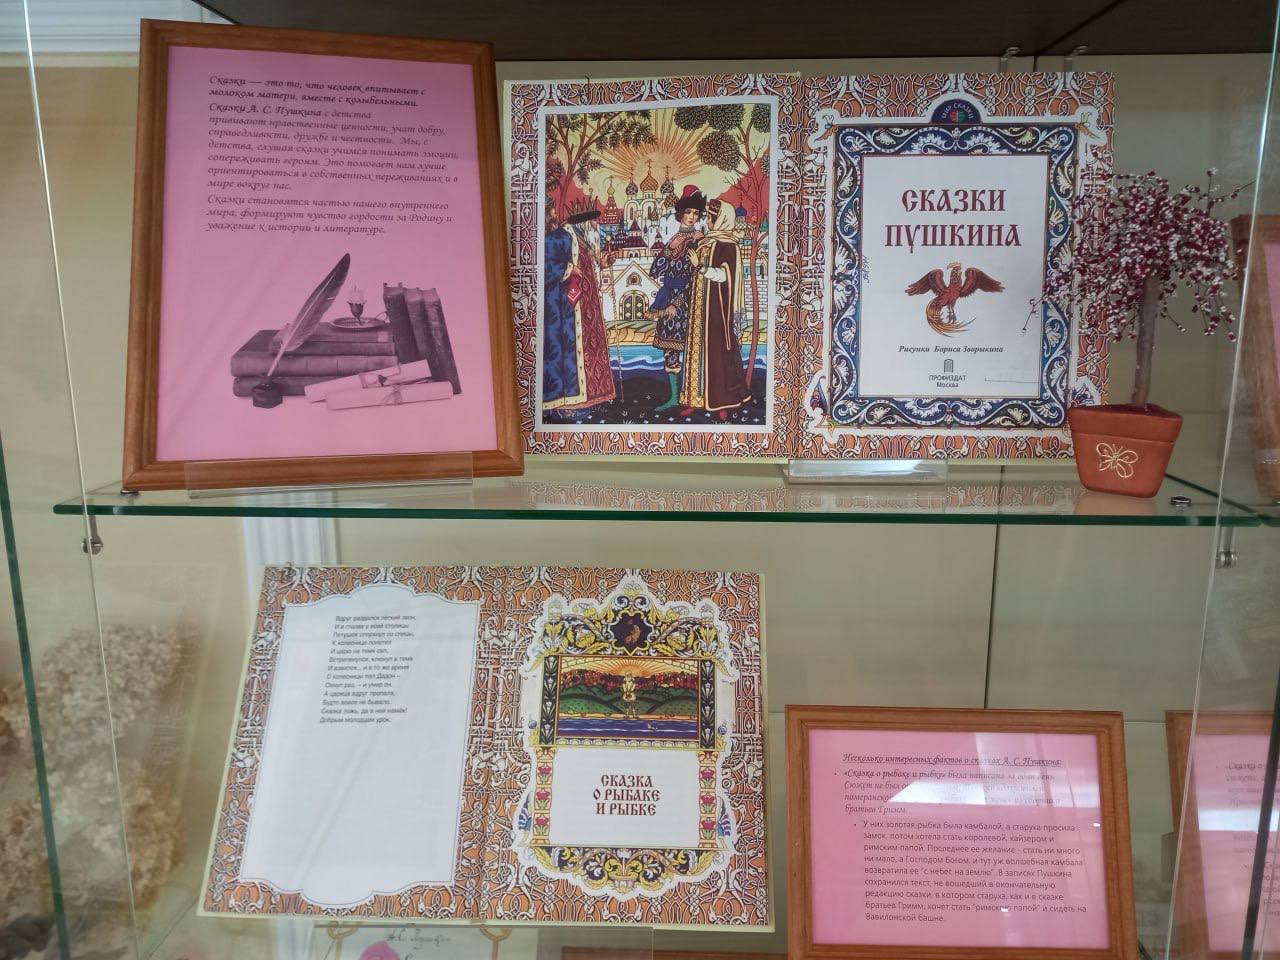 Сказки — это то, что человек впитывает с
молоком матери, вместе с колыбельными.
Сказки А. С. Пушкина с детства
прививают нравственные ценности, учат добру,
справедливости, дружбе и честности. Мы, с
детства, слушая сказки учимся понимать эмоции,
сопереживать героям. Это помогает нам лучше
ориентироваться в собственных переживаниях и в
мире вокруг нас.
Сказки становятся частью нашего внутреннего
мира, формируют чувство гордости за Родину и
уважение к истории и литературе.
МИР СКАЗКИ
СКАЗКИ
ПУШКИНА
Рисунки Бориса Зворыкина
ПРОФИЗДАТ
Москва
Вдруг раздался легкий звон,
И в глазах у всей столицы
Петушок спорхнул со спицы,
К колеснице полетел
И царю на темя сел,
Встрепенулся, клюнул в темя
И взвился... и в то же время
С колесницы пал Дадон –
Охнул раз, – и умер он.
А царица вдруг пропала,
Будто вовсе не бывало.
Сказка ложь, да в ней намёк!
Добрым молодцам урок.
СКАЗКА
О РЫБАКЕ
И РЫБКЕ
Несколько интересных фактов о сказках А. С. Пушкина:
• «Сказка о рыбаке и рыбке» была написана за один день.
Сюжет не был
померанской
братьев Гримм.
• У них золотая рыбка была камбалой, а старуха просила
замок, потом хотела стать королевой, кайзером и
римским папой. Последнее ее желание - стать ни много
ни мало, а Господом Богом, и тут уж волшебная камбала
возвратила ее "с небес на землю". В записях Пушкина
сохранился текст, не вошедший в окончательную
редакцию сказки, в котором старуха, как и в сказке
братьев Гримм, хочет стать "римской папой" и сидеть на
Вавилонской башне.
А.С. Пушкин